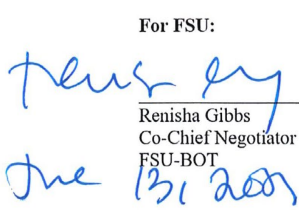 For FSU:
Renisha Gibbs
Co-Chief Negotiator
FSU-BOT
June 13,